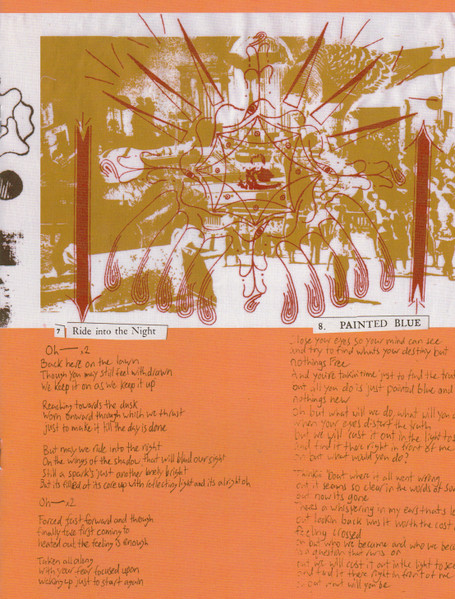 7 Ride into the Night
Oh — x2
Back here on the
Though you may still feel withdrawn
We keep it on as we keep it up
Reaching towards the dusk
worn forward through which we thrust
Just to make it till the day is done
But may we ride into the night
On the wings of the shadow that will blind our sight
Still a spark's just another lonely bright
But its of its core up with reflecting light and its alright oh
Oh — x2
Forced fast forward and though
finally too first coming to
heated out the feeling is enough
Taken all along
with your fear focused upon
waking up just to start again
8. PAINTED BLUE
lose your eyes so your mind can see
and try to find whats your destiny but
nothings Free
And you're taking time just to find the trut
out all you do is just painted blue and
nothings new
Oh but what will we do, what will you d
when your eyes distort the truth
but we will cast it out in the light to s
and find it there right in front of me
Oh but what would you do?
'bout when it all went wrong
cut it seems so clear in the words of
out now its gone
a whispering in my ears thats l
out lookin back was it worth the cost
feeling crossed
Oh but who we become and who we
is a question that runs on
but we will cast it out in the light to see
and find it there right in front of me
Oh but now will you be